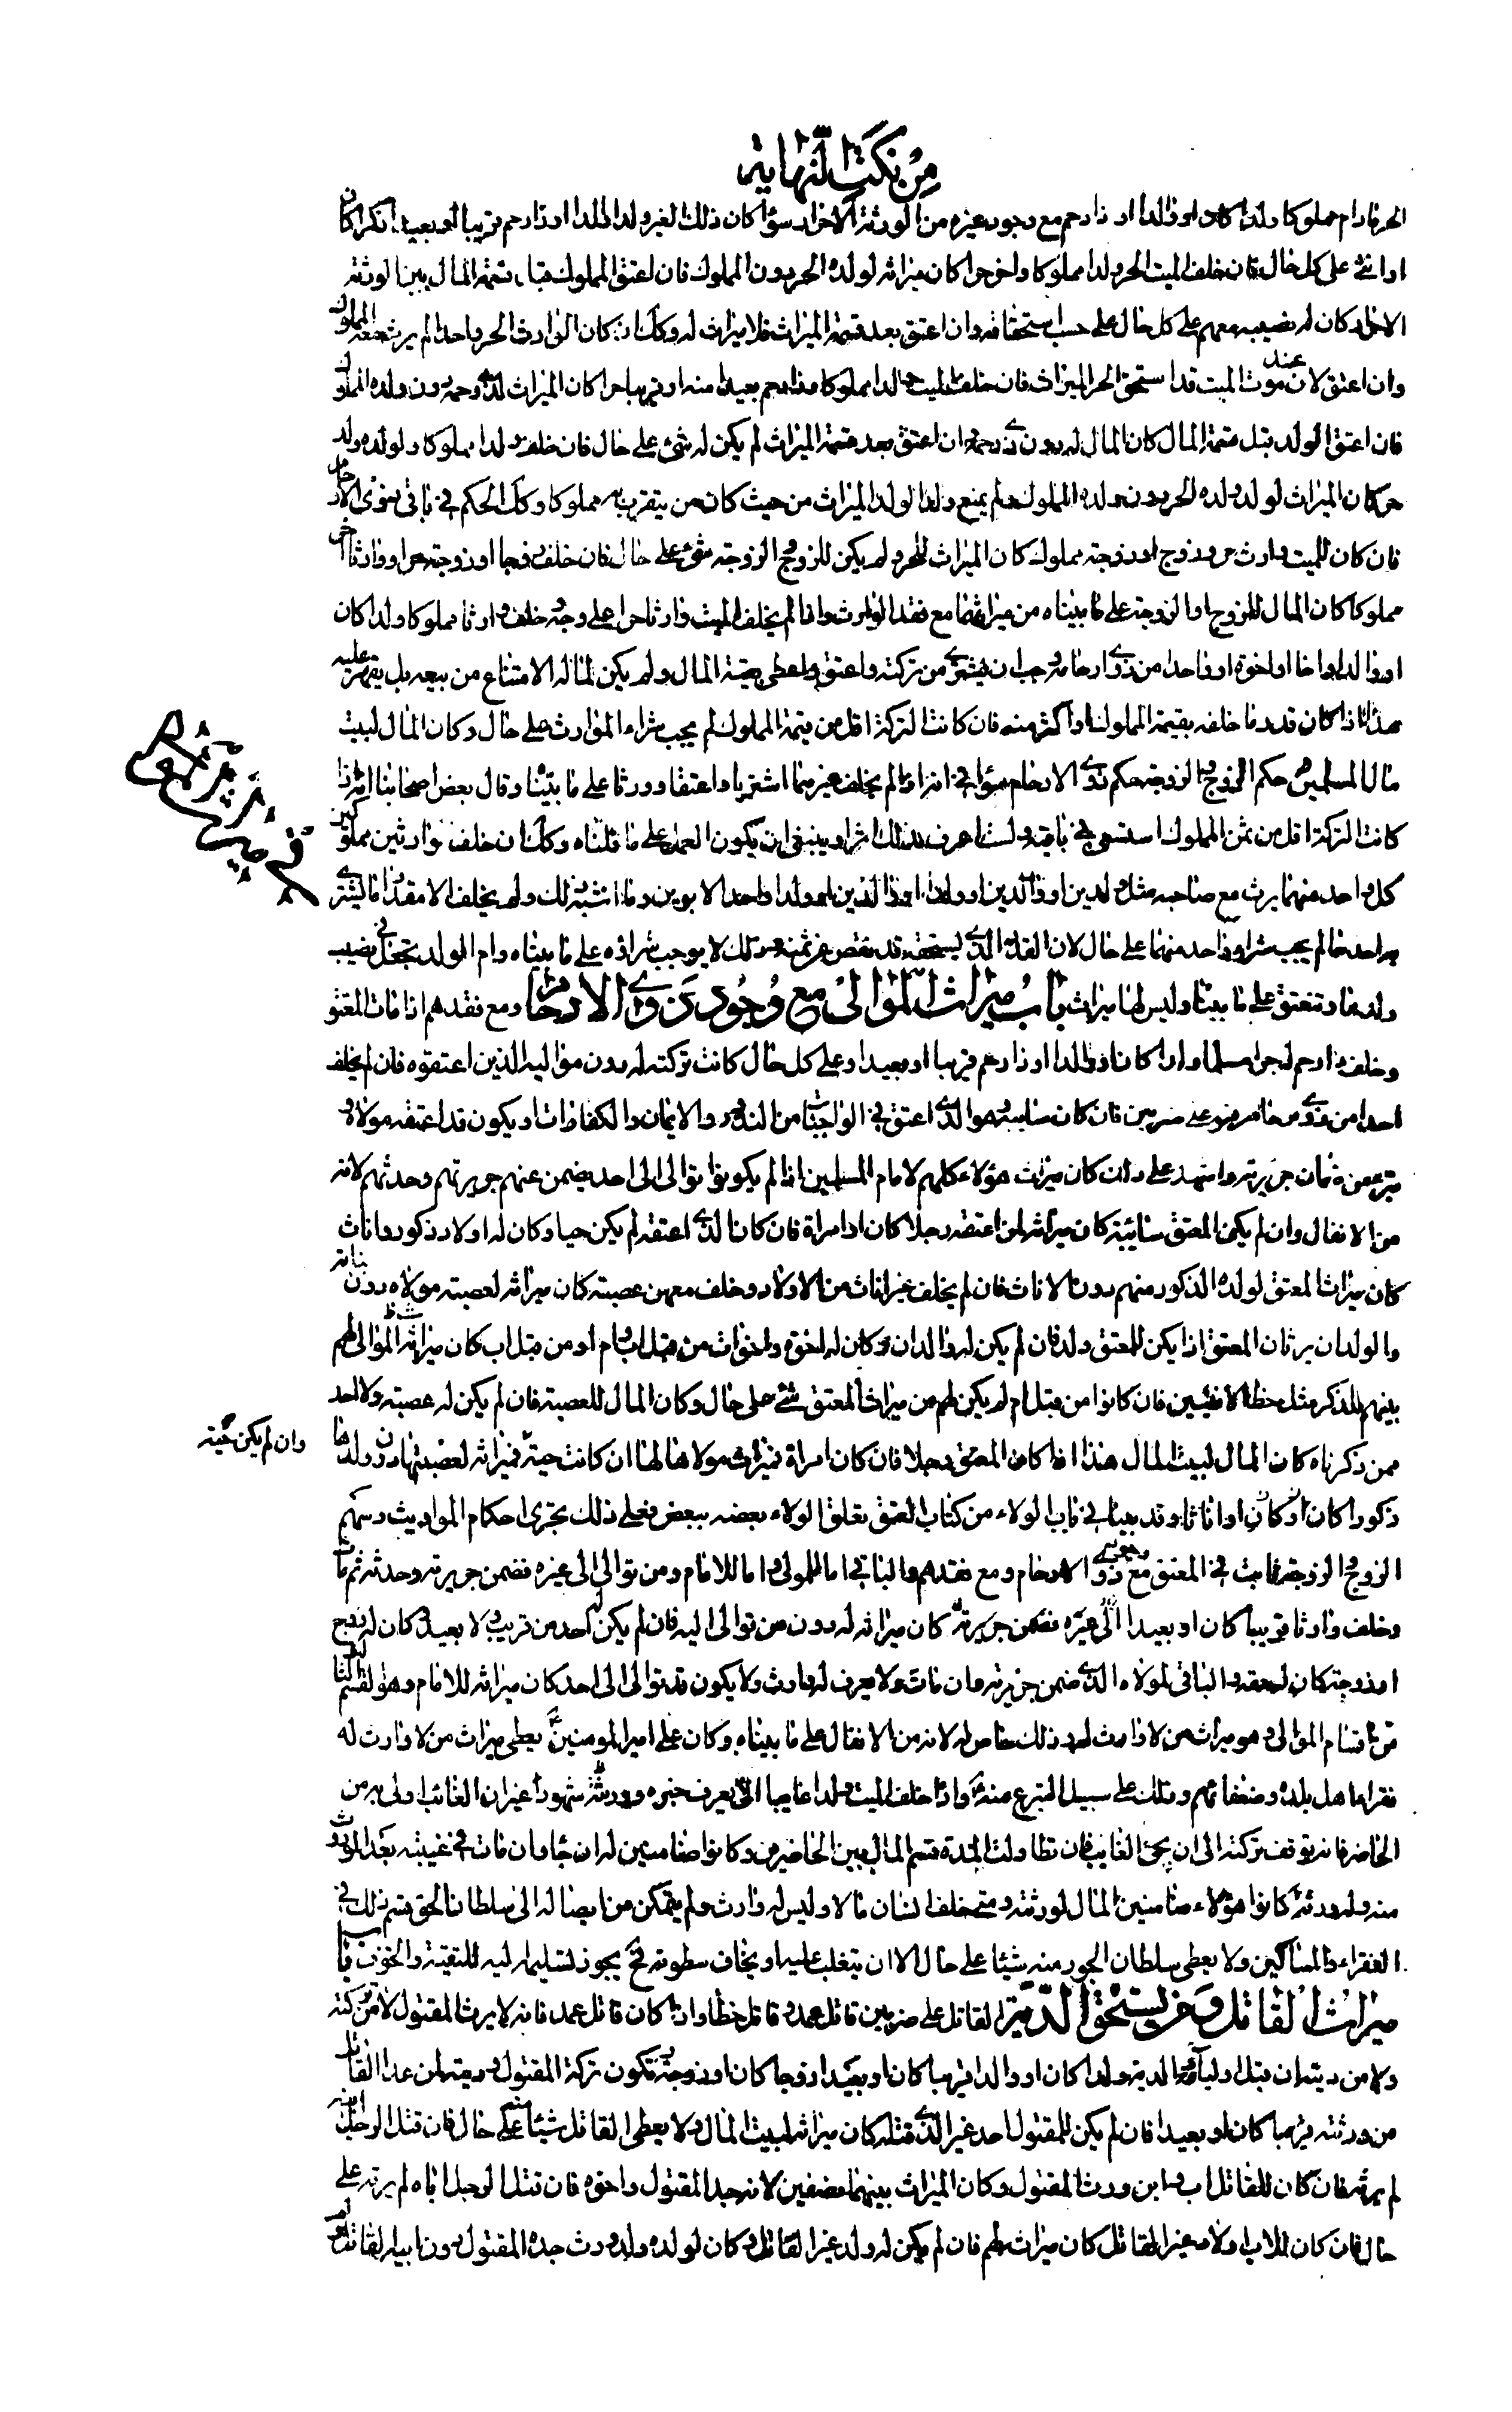 من نكت النهاية
الحر ما دام مملوكا ولدا كان او والدا او ذا رحم مع وجود غيره من الورثة الاحرار سواء كان ذلك الغير ولدا او والدا او ذا رحم قريبا او بعيدا ذكرا كان
او انثى على كل حال فان خلف الميت الحر ولدا مملوكا واخر حرا كان ميراثه لولده الحر دون المملوك فان اعتق المملوك قبل قسمة المال بين الورثة
الاحرار كان له نصيبه معهم على كل حال على حسب استحقاقه وان اعتق بعد قسمة الميراث فلا ميراث له وكك ان كان الوارث الحر واحدا لم يرث معه المملوك
وان اعتق لان عند موت الميت قد استحق الحر الميراث فان خلف الميت ولدا مملوكا وذا رحم بعيدا منه او قريبا حرا كان الميراث لذى رحمه دون ولده المملوك
فان اعتق الولد قبل قسمة المال كان المال له دون ذى رحمه وان اعتق بعد قسمة الميراث لم يكن له شئ على حال فان خلف ولدا مملوكا ولولده ولد
حر كان الميراث لولد ولده الحر دون ولده المملوك ولم يمنع ولد الولد الميراث من حيث كان من يتقرب به مملوكا وكك الحكم في باقى ذوى الارحام
فان كان للميت وارث حر وزوج او زوجة مملوك كان الميراث للحر ولم يكن للزوج والزوجة شئ على حال فان خلف زوجا او زوجة حرا ووارثا اخر
مملوكا كان المال للزوج او الزوجة على ما بيناه من ميراثهما مع فقد الوارث واذا لم يخلف الميت وارثا حرا على وجه وخلف وارثا مملوكا ولدا كان
او والدا او اخا او اخوة او واحدا من ذوى ارحامه وجب ان يشترى من تركته واعتق واعطى بقية المال ولم يكن لمالكه الامتناع من بيعه بل يقهر عليه
هذا اذا كان قدر ما خلفه بقيمة المملوك او اكثر منه فان كانت التركة اقل من قيمة المملوك لم يجب شراء الوارث على حال وكان المال لبيت
مال المسلمين وحكم الزوج والزوجة حكم ذوى الارحام سواء في انه اذا لم يخلف غيرهما اشتريا واعتقا وورثا على ما بيناه وقال بعض اصحابنا انه اذا
كانت التركة اقل من ثمن المملوك استسعى في باقيه ولست اعرف بذلك اثرا وينبغى ان يكون العمل على ما قلناه وكك ان خلف وارثين مملوكين
كل واحد منهما يرث مع صاحبه مثل ولدين او والدين او ولد او والدين او ولد واحد الابوين وما اشبه ذلك ولم يخلف الا مقدار ما يشترى
به احدهما لم يجب شراء واحد منهما على حال لان القدر الذى يستحقه قد نقص عن ثمنه وذلك لا يوجب شراؤه على ما بيناه وام الولد تجعل في نصيب
ولدها وتعتق على ما بيناه وليس لها ميراث باب ميراث الموالى مع وجود ذوى الارحام ومع فقدهم اذا مات المعتق
وخلف ذا رحم له حرا مسلما ولدا كان او والدا او ذا رحم قريبا او بعيدا وعلى كل حال كانت تركته له دون مواليه الذين اعتقوه فان لم يخلف
احدا من ذوى ارحامه فهو على ضربين فان كان سائبة وهو الذى اعتق في الواجبات من النذور والايمان والكفارات او يكون قد اعتقه مولاه و
تبرئ من ضمان جريرته واشهد على ذلك كان ميراث هؤلاء كلهم لامام المسلمين اذا لم يكونوا توالوا الى احد يضمن عنهم جريرتهم وحدثهم لانه
من الانفال وان لم يكن المعتق سائبة كان ميراثه لمن اعتقه رجلا كان او امراة فان كان الذى اعتقه لم يكن حيا وكان له اولاد ذكور واناث
كان ميراث المعتق لولده الذكور منهم دون الاناث فان لم يخلف غير اناث من الاولاد وخلف معهن عصبة كان ميراثه لعصبة مولاه دون بناته
والوالدان يرثان المعتق اذا لم يكن للمعتق ولد فان لم يكن له والدان وكان له اخوة واخوات من قبل اب وام او من قبل اب كان ميراث الموالى لهم
بينهم للذكر مثل حظ الانثيين فان كانوا من قبل ام لم يكن لهم من ميراث المعتق شئ على حال وكان المال للعصبة فان لم يكن له عصبة ولا احد
ممن ذكرناه كان المال لبيت المال هذا اذا كان المعتق رجلا فان كان امراة فميراث مولاها لها ان كانت حية فميراثه لعصبتها دون ولدها
وان لم يكن حية
ذكورا كان او كان او اناثا وقد بينا في باب الولاء من كتاب العتق تعلق الولاء بعضه ببعض فعلى ذلك يجرى احكام المواريث وسهم
الزوج والزوجة ثابت في المعتق مع وجود ذوى الارحام ومع فقدهم والباقي اما للمولى واما للامام ومن توالى الى غيره فضمن جريرته وحدثه ثم مات
وخلف وارثا قريبا كان او بعيدا كان ميراثه له دون من توالى اليه فان لم يكن له احد من قريب ولا بعيد وكان له زوج
او زوجة كان له حقه والباقي لمولاه الذى ضمن جريرته وان مات ولا يعرف له وارث ولا يكون قد توالى الى احد كان ميراثه للامام وهو القسم الثالث
من اقسام الموالى وهو ميراث من لا وارث له وذلك خاص له لانه من الانفال على ما بيناه وكان على امير المؤمنين يعطى ميراث من لا وارث له
فقراء اهل بلده وضعفائهم وذلك على سبيل التبرع منه واذا خلف الميت ولدا غائبا لا يعرف خبره وورثة شهودا غير ان الغائب اولى به من
الحاضر فانه توقف تركته الى ان يجئ الغائب فان تطاولت المدة قسم المال بين الحاضرين وكانوا ضامنين له ان جاء وان مات في غيبته بعد الموروث
منه وله ورثة كانوا هؤلاء ضامنين المال لورثته ومتى خلف انسان مالا وليس له وارث ولم يتمكن من ايصاله الى سلطان الحق قسم ذلك في
الفقراء والمساكين ولا يعطى سلطان الجور منه شيئا على حال الا ان يتغلب عليه او يخاف سطوته فح يجوز تسليمه اليه للتقية والخوف باب
ميراث القاتل ومن يستحق الدية القاتل على ضربين قاتل عمد وقاتل خطاء واذا كان قاتل عمد فانه لا يرث المقتول لا من تركته
ولا من ديته ان قبل اولياؤه الدية ولدا كان او والدا قريبا كان او بعيدا زوجا كان او زوجة وتكون تركة المقتول وديته لمن عدا القاتل
من ورثته قريبا كان او بعيدا فان لم يكن للمقتول احد غير الذى قتله كان ميراثه لبيت المال ولا يعطى القاتل شيئا على حال فان قتل الرجل ابنه
لم يرثه فان كان للقاتل اب وابن ورثا المقتول وكان الميراث بينهما نصفين لانه جد المقتول واخوه فان قتل الرجل اباه لم يرثه على
حال فان كان للاب اولاد غير القاتل كان ميراثه لهم فان لم يكن له ولد غير القاتل وكان لولده ولد ورث جده المقتول دون ابيه القاتل